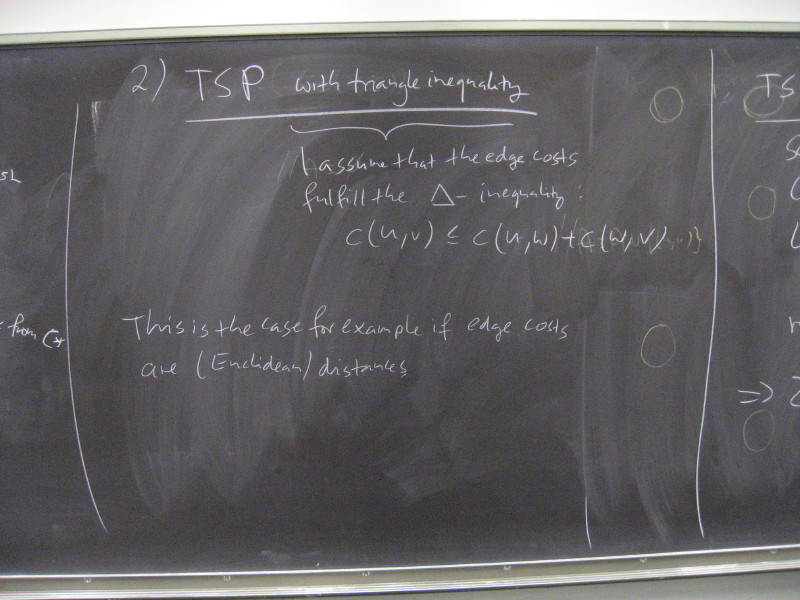 2) TSP with triangle inequality
assume that the edge costs
fulfill the Δ- inequality:
c(u,v) ≤ c(u,w)+c(w,v)
This is the case for example if edge costs
are (Euclidean) distances
from C*
TS
⇒